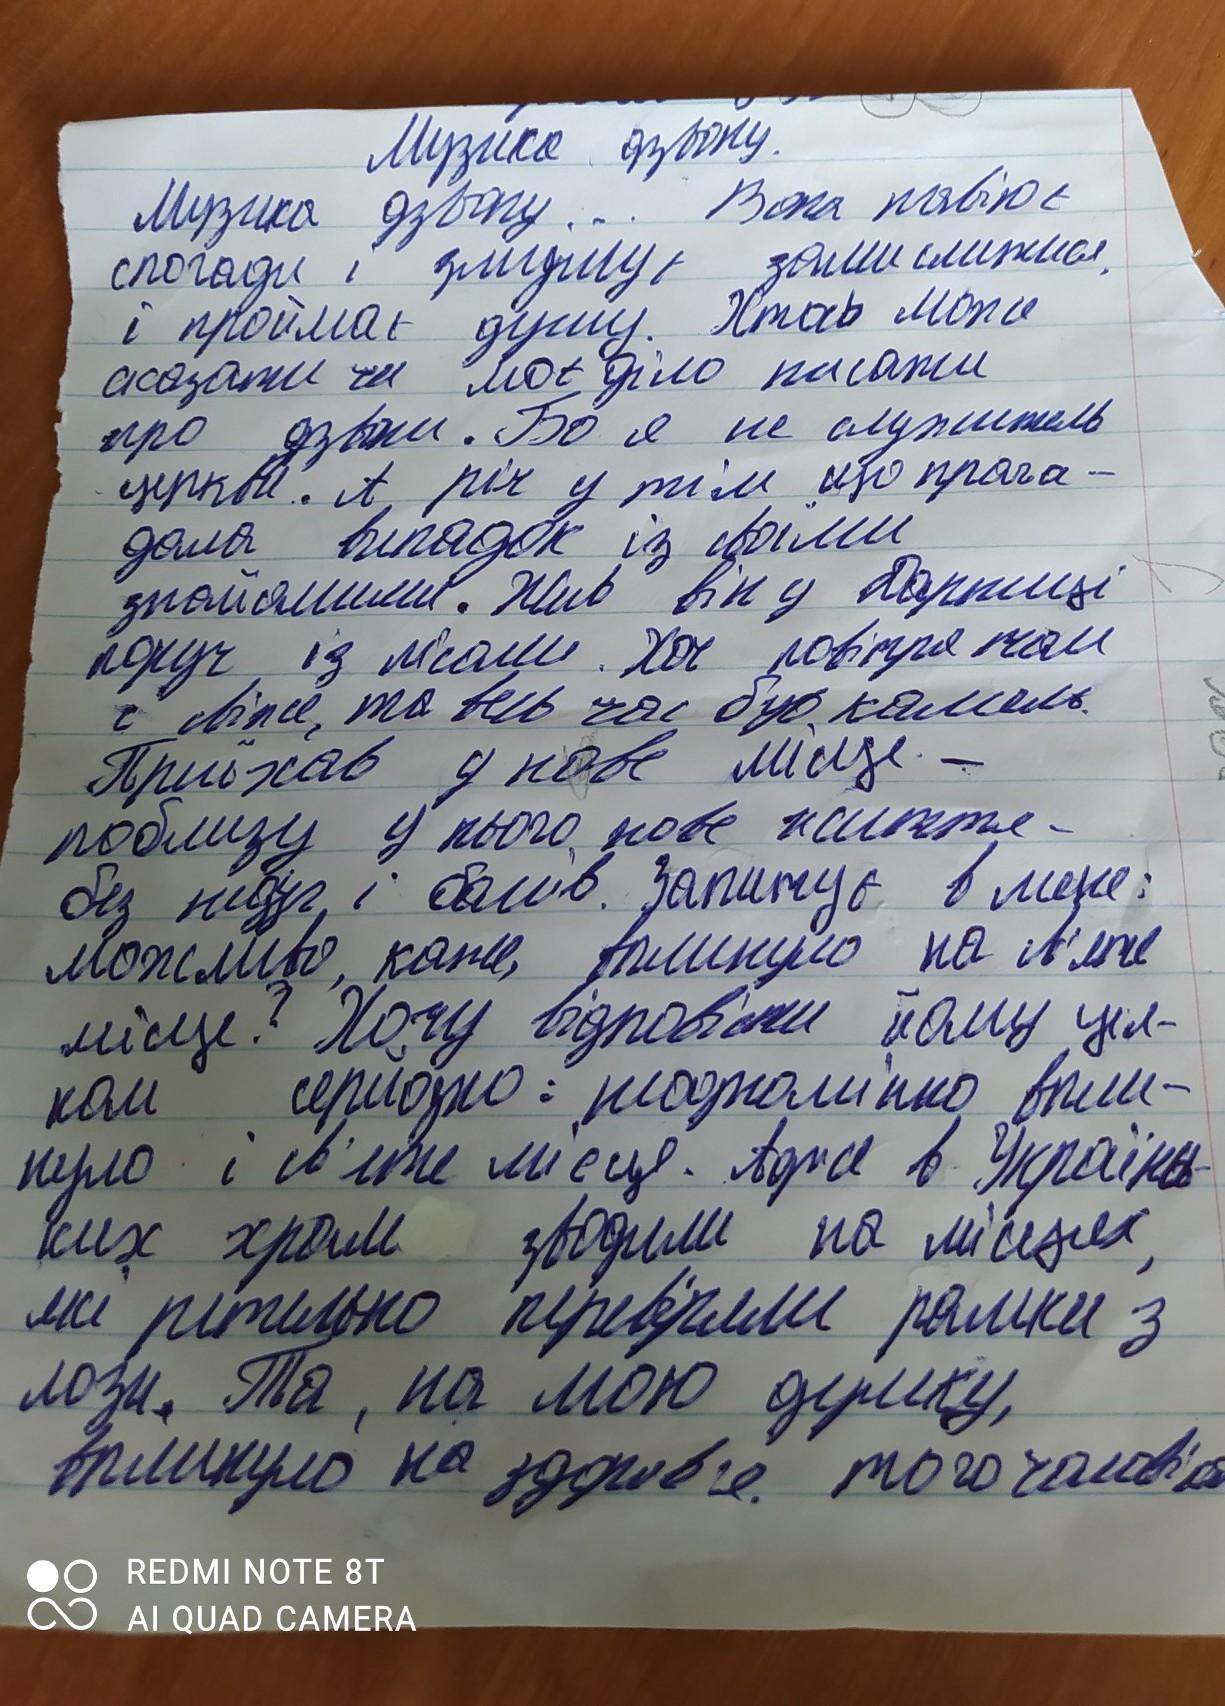 Музика дзвону.
Музика дзвону... Вона навіює
спогади і змушує замислитися,
і проймає душу. Хтось може
сказати чи моє діло писати
про дзвони. Бо я не служитель
церкви. А річ у тім що прога-
дала випадок із своїми
знайомими. Жив він у
поруч із лісами. Хоч повітря там
є свіже, та весь час був кашель.
Приїхав у нове місце -
поблизу у нього нове життя -
без недуг і болів. Запитує в мене:
можливо, каже, вплинуло на св'яте
місце? Хочу відповісти йому ціл-
ком серйозно: неодмолінно впли-
нуло і св'яте місця. Адже в Україньс-
ких храм зводили на місцях,
які ретельно перевіряли рамки з
лози. Та, на мою думку,
вплинуло на здоров'я того чоловіка
REDMI NOTE 8T
AI QUAD CAMERA